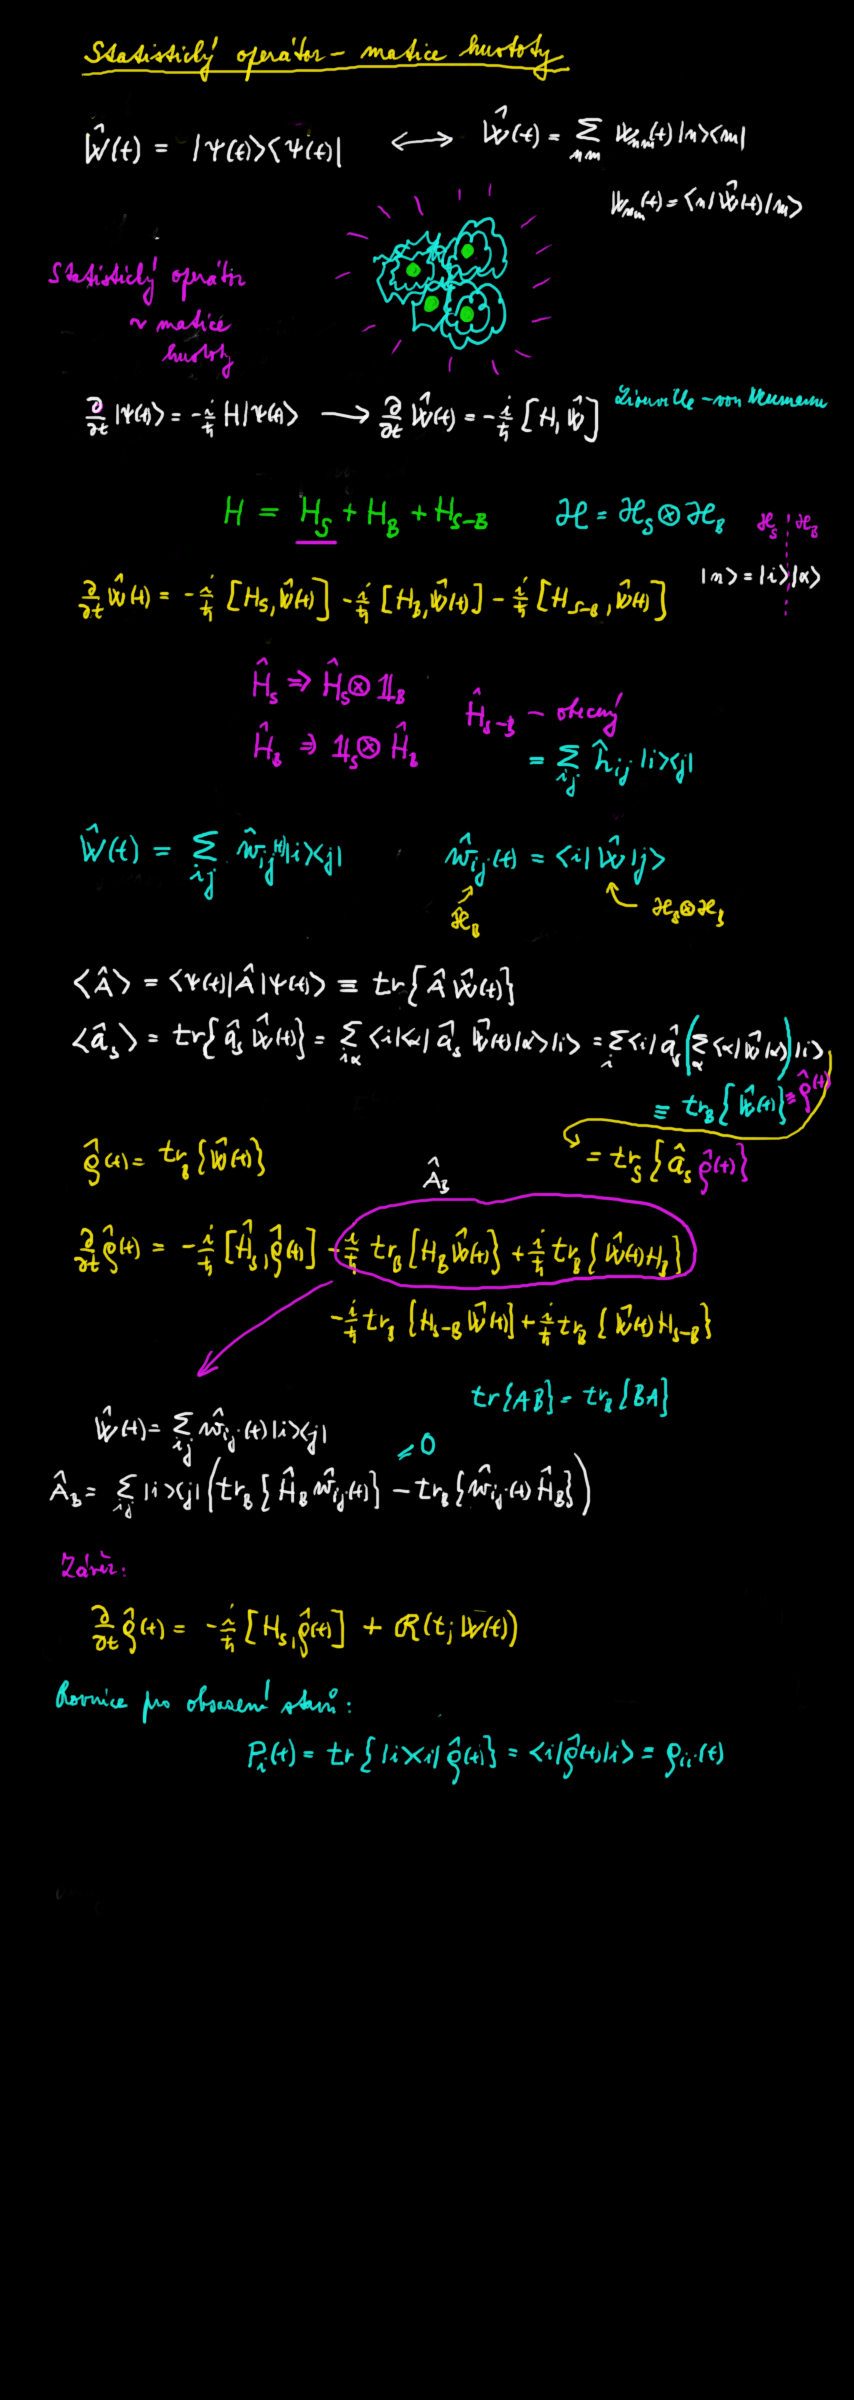 Statistický operátor – matice hustoty
Ŵ(t) = |Ψ(t)><Ψ(t)| ⟷ Ŵ(t) = Σ_{nm} W_{nm}(t) |n><m|
W_{nm}(t) = <n|Ŵ(t)|m>
Statistický operátor
~ matice
hustoty
∂/∂t |Ψ(t)> = -i/ħ H|Ψ(t)> ⟶ ∂/∂t Ŵ(t) = -i/ħ [H, Ŵ] Liouville – von Neumann
H = H_S + H_B + H_{S-B} ℋ = ℋ_S ⊗ ℋ_B ℋ_S ¦ ℋ_B
|n> = |i>|α>
∂/∂t Ŵ(t) = -i/ħ [H_S, Ŵ(t)] - i/ħ [H_B, Ŵ(t)] - i/ħ [H_{S-B}, Ŵ(t)]
Ĥ_S ⇒ Ĥ_S ⊗ 𝟙_B
Ĥ_{S-B} – obecný
Ĥ_B ⇒ 𝟙_S ⊗ Ĥ_B
= Σ_{ij} ĥ_{ij} |i><j|
Ŵ(t) = Σ_{ij} ŵ_{ij}(t)|i><j| ŵ_{ij}(t) = <i|Ŵ|j>
ℋ_B ℋ_S⊗ℋ_B
<Â> = <Ψ(t)|Â|Ψ(t)> ≡ tr{Â Ŵ(t)}
<â_s> = tr{â_s Ŵ(t)} = Σ_{iα} <i|<α| â_s Ŵ(t)|α>|i> = Σ_i <i| â_s (Σ_α <α|Ŵ|α>)|i>
≡ tr_B{Ŵ(t)} ≡ ρ̂(t)
= tr_S{â_s ρ̂(t)}
ρ̂(t) = tr_B{Ŵ(t)}
Â_B
∂/∂t ρ̂(t) = -i/ħ [Ĥ_S, ρ̂(t)] - i/ħ tr_B{H_B Ŵ(t)} + i/ħ tr_B{Ŵ(t) H_B}
-i/ħ tr_B{H_{S-B} Ŵ(t)} + i/ħ tr_B{Ŵ(t) H_{S-B}}
tr{AB} = tr_B{BA}
Ŵ(t) = Σ_{ij} ŵ_{ij}(t)|i><j|
= 0
Â_B = Σ_{ij} |i><j| (tr_B{Ĥ_B ŵ_{ij}(t)} - tr_B{ŵ_{ij}(t) Ĥ_B})
Závěr:
∂/∂t ρ̂(t) = -i/ħ [H_S, ρ̂(t)] + R(t; W(t))
Rovnice pro obsazení stavů:
P_i(t) = tr{|i><i| ρ̂(t)} = <i|ρ̂(t)|i> = ρ_{ii}(t)